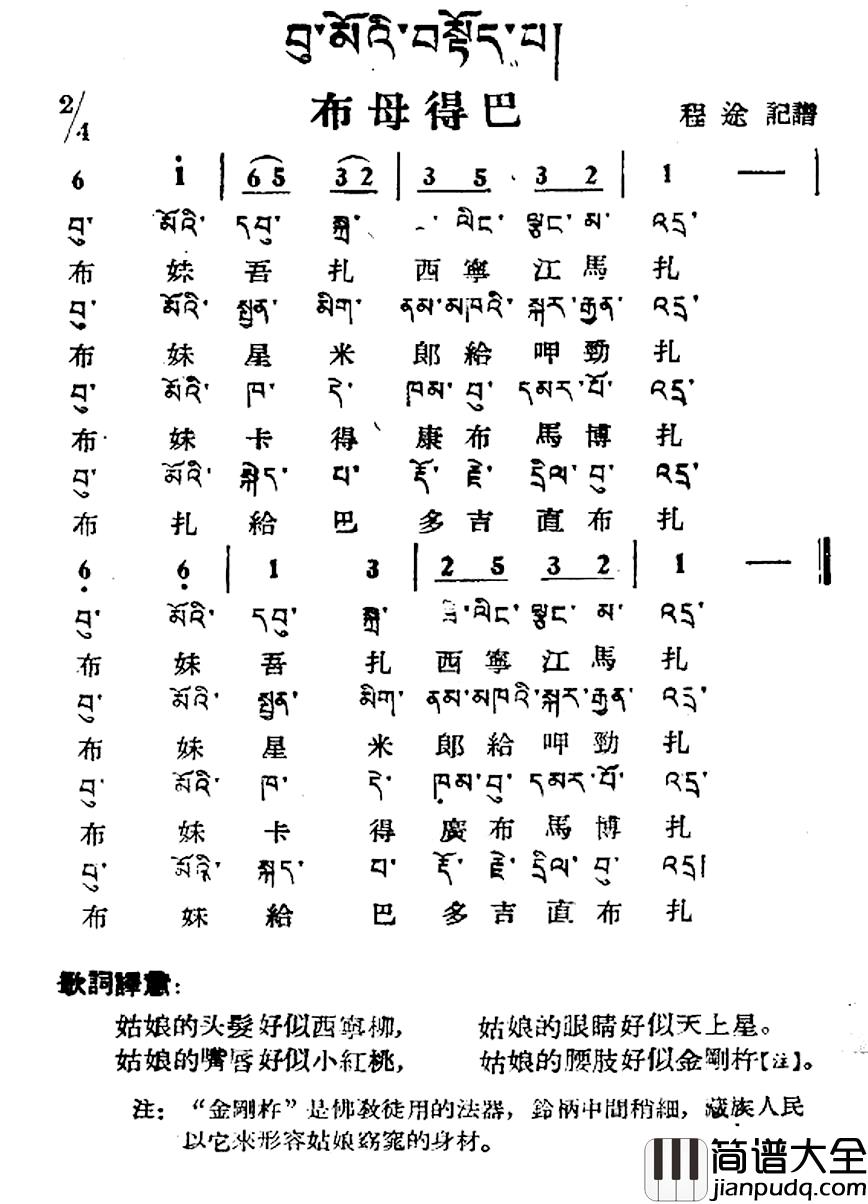 བུ་མོའི་བསྟོད་པ།
2/4 布母得巴 程途 記譜
6 i | 6 5 3 2 | 3 5 3 2 | 1 — |
བུ་ མོའི་ དབུ་ སྐྲ་ ལིང་ ལྕང་ མ་ འདྲ་
布 妹 吾 扎 西 寧 江 馬 扎
བུ་ མོའི་ སྤྱན་ མིག་ ནམ་མཁའི་ སྐར་རྒྱན་ འདྲ་
布 妹 星 米 郎 給 呷 勁 扎
བུ་ མོའི་ ཁ་ དེ་ ཁམ་ བུ་ དམར་པོ་ འདྲ་
布 妹 卡 得 康 布 馬 博 扎
བུ་ མོའི་ སྐེད་ པ་ རྡོ་ རྗེ་ དྲིལ་ བུ་ འདྲ་
布 扎 給 巴 多 吉 直 布 扎
6 6 | 1 3 | 2 5 3 2 | 1 — ‖
བུ་ མོའི་ དབུ་ སྐྲ་ ལིང་ ལྕང་ མ་ འདྲ་
布 妹 吾 扎 西 寧 江 馬 扎
བུ་ མོའི་ སྤྱན་ མིག་ ནམ་མཁའི་སྐར་རྒྱན་ འདྲ་
布 妹 星 米 郎 給 呷 勁 扎
བུ་ མོའི་ ཁ་ དེ་ ཁམ་བུ་ དམར་པོ་ འདྲ་
布 妹 卡 得 廣 布 馬 博 扎
བུ་ མོའི་ སྐད་ པ་ རྡོ་ རྗེ་ དྲིལ་ བུ་ འདྲ།
布 妹 給 巴 多 吉 直 布 扎
歌詞譯意：
姑娘的头髮好似西寧柳， 姑娘的眼睛好似天上星。
姑娘的嘴唇好似小紅桃， 姑娘的腰肢好似金剛杵【注】。
注：“金剛杵”是佛教徒用的法器，鈴柄中間稍細，藏族人民
以它来形容姑娘窈窕的身材。
简谱大全
jianpudq.com